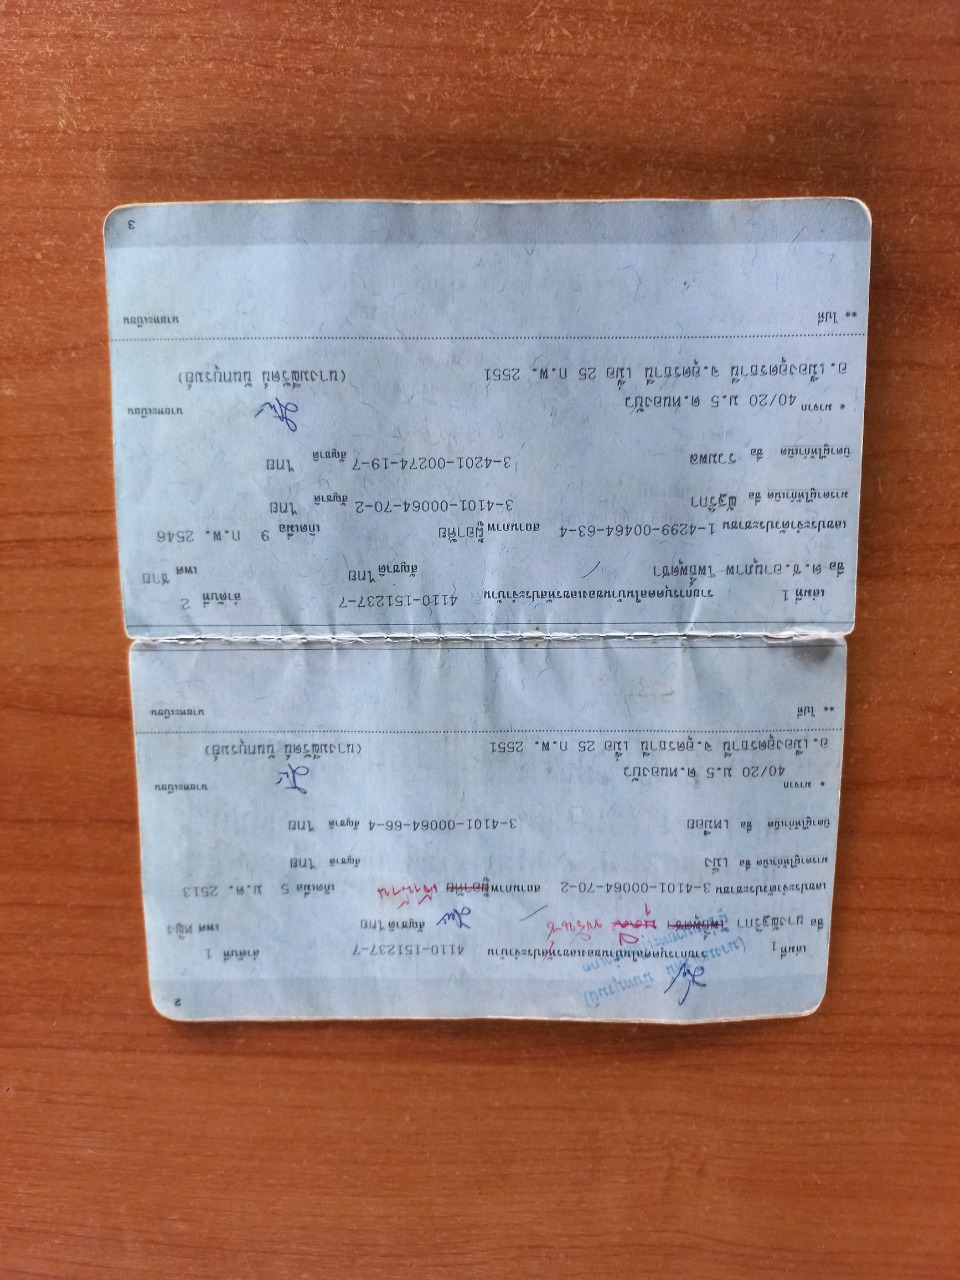 2
เล่มที่ 1 รายการบุคคลในบ้านของเลขรหัสประจำบ้าน 4110-151237-7 ลำดับที่ 1
ชื่อ นางณัฐริกา สัญชาติ ไทย เพศ หญิง
เลขประจำตัวประชาชน 3-4101-00064-70-2 สถานภาพ ผู้อาศัย เจ้าบ้าน เกิดเมื่อ 5 ม.ค. 2513
มารดาผู้ให้กำเนิด ชื่อ สัญชาติ ไทย
บิดาผู้ให้กำเนิด ชื่อ เหมือย 3-4101-00064-66-4 สัญชาติ ไทย
* มาจาก 40/20 ม.5 ต.หนองบัว นายทะเบียน
อ.เมืองอุดรธานี จ.อุดรธานี เมื่อ 25 ก.พ. 2551 (นางมณีรัตน์ นันทบุรมย์)
** ไปที่ นายทะเบียน
เล่มที่ 1 รายการบุคคลในบ้านของเลขรหัสประจำบ้าน 4110-151237-7 ลำดับที่ 2
ชื่อ ด.ช.อานุภาพ โพธิ์พุดซา สัญชาติ ไทย เพศ ชาย
เลขประจำตัวประชาชน 1-4299-00464-63-4 สถานภาพ ผู้อาศัย เกิดเมื่อ 9 ก.พ. 2546
มารดาผู้ให้กำเนิด ชื่อ ณัฐริกา 3-4101-00064-70-2 สัญชาติ ไทย
บิดาผู้ให้กำเนิด ชื่อ รวมพล 3-4201-00274-19-7 สัญชาติ ไทย
* มาจาก 40/20 ม.5 ต.หนองบัว นายทะเบียน
อ.เมืองอุดรธานี จ.อุดรธานี เมื่อ 25 ก.พ. 2551 (นางมณีรัตน์ นันทบุรมย์)
** ไปที่ นายทะเบียน
3